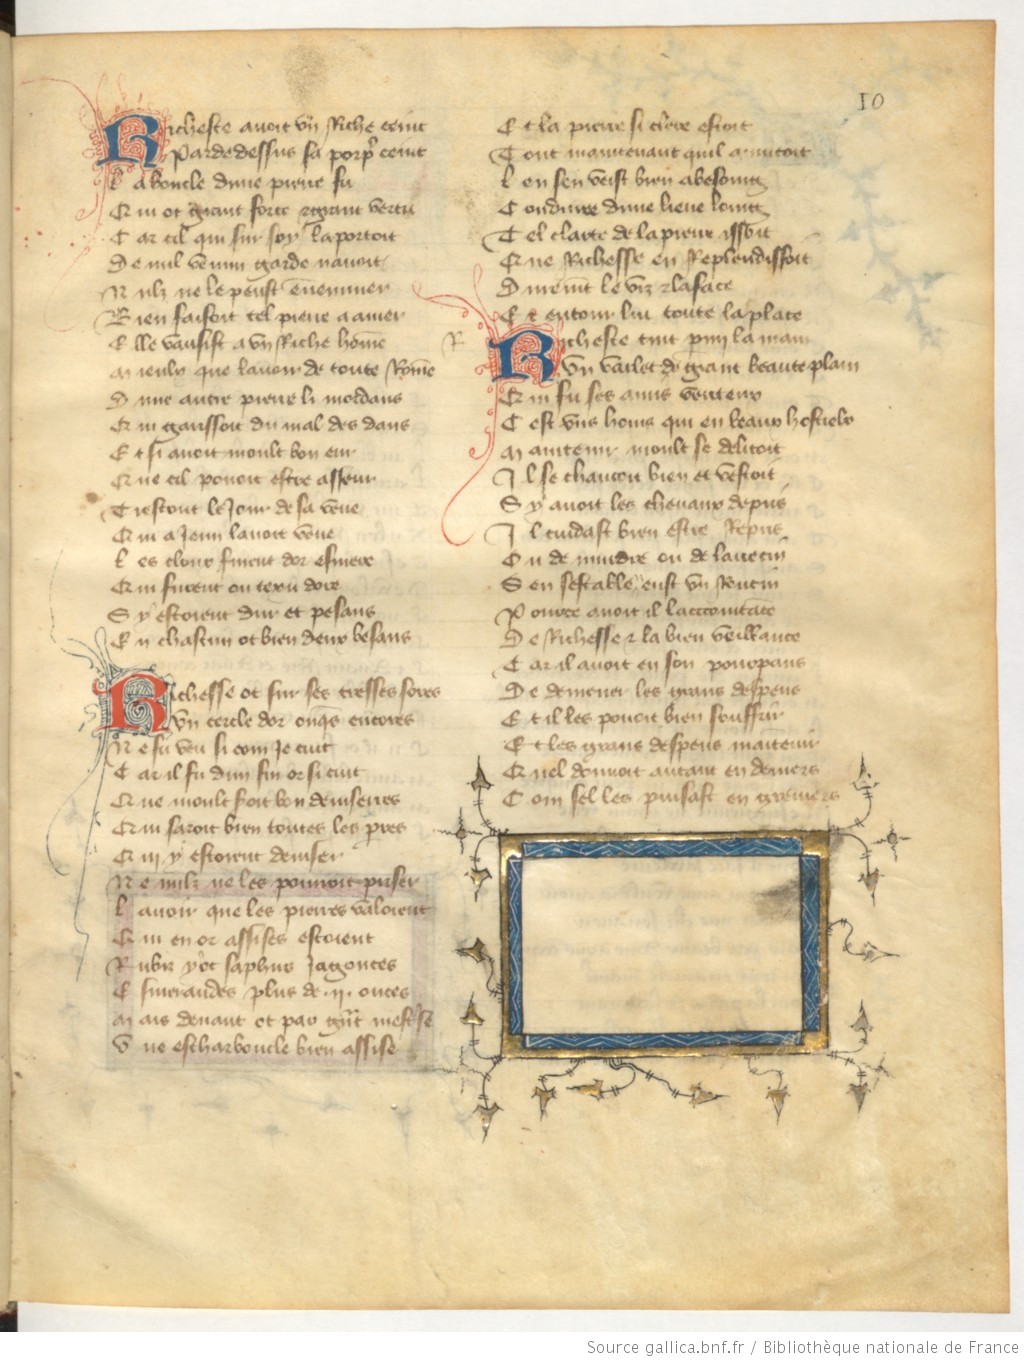 10
Richesse avoit un Riche ceint
Par dedessus sa porp ceint
La boucle dune pierre fu
Qui ot grant force et grant vertu
Car cil qui sur soy la portoit
De nul venim garde navoit
Nulz ne le peust envenimer
Bien faisoit tel pierre a amer
Elle vausist a un Riche home
Mieulx que lavoir de toute Rome
Dune autre pierre li mordans
Qui garissoit du mal des dans
Et si avoit moult bon eur
Que cil pouoit estre asseur
Trestout le Jour de sa veue
Qui a Jeun lavoit veue
Les cloux furent dor esmere
Qui furent ou texu dore
Sy estoient dur et pesans
En chascun ot bien deux besans
Richesse ot sur ses tresses sores
Un cercle dor onqs encores
Ne fu veu si com Je cuit
Car il fu dun fin or si cuit
Que moult seroit bon deviseres
Qui saroit bien toutes les pres
Qui y estoient deviser
Ne nulz ne les pourroit priser
Lavoir que les pierres valoient
Qui en or assises estoient
Rubiz y ot saphirs Jagonces
Esmeraudes plus de .ii. onces
Mais devant ot par gnt mestse
Une escharboucle bien assise
Et la pierre si clere estoit
Tout maintenant quil anuitoit
Len sen veist bien a besoing
Conduire dune lieue loing
Tel clarte de la pierre issoit
Que Richesse en Replendissoit
Durement le viz et la face
Et entour lui toute la place
R
Richesse tint parmi la main
Un varlet de grant beaute plain
Qui fu ses amis
Cest uns homs qui en beaux hostielx
Maintenir moult se delitoit
Il se chaucoit bien et vestoit
Sy avoit les chevaux de pris
Il cuidast bien estre Repris
Ou de murdre ou de larrecin
Sen sestable eust un Roncin
Pource avoit il laccointance
De Richesse et la bien veillance
Car il avoit en son pourpans
De demener les grans despens
Et il les pouoit bien souffrir
Et les grans despens maintenir
Quel donnoit autant en deniers
Com sel les puisast en greniers
Source gallica.bnf.fr / Bibliothèque nationale de France